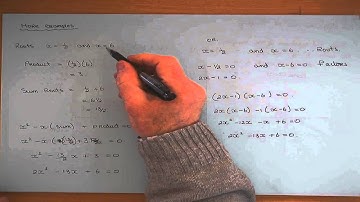 More Examples
Roots x = ½ and x = 6
Product = (½)(6)
= 3
Sum = ½ + 6
= 6½
= 13/2
x² - x(sum) + product = 0
x² - x(13/2) + 3 = 0
x² - 13/2 x + 3 = 0
2x² - 13x + 6 = 0
OR
x = ½ and x = 6 Roots
x - ½ = 0 and x - 6 = 0 Factors
2x - 1 = 0
(2x - 1)(x - 6) = 0
2x(x - 6) - 1(x - 6) = 0
2x² - 12x - x + 6 = 0
2x² - 13x + 6 = 0